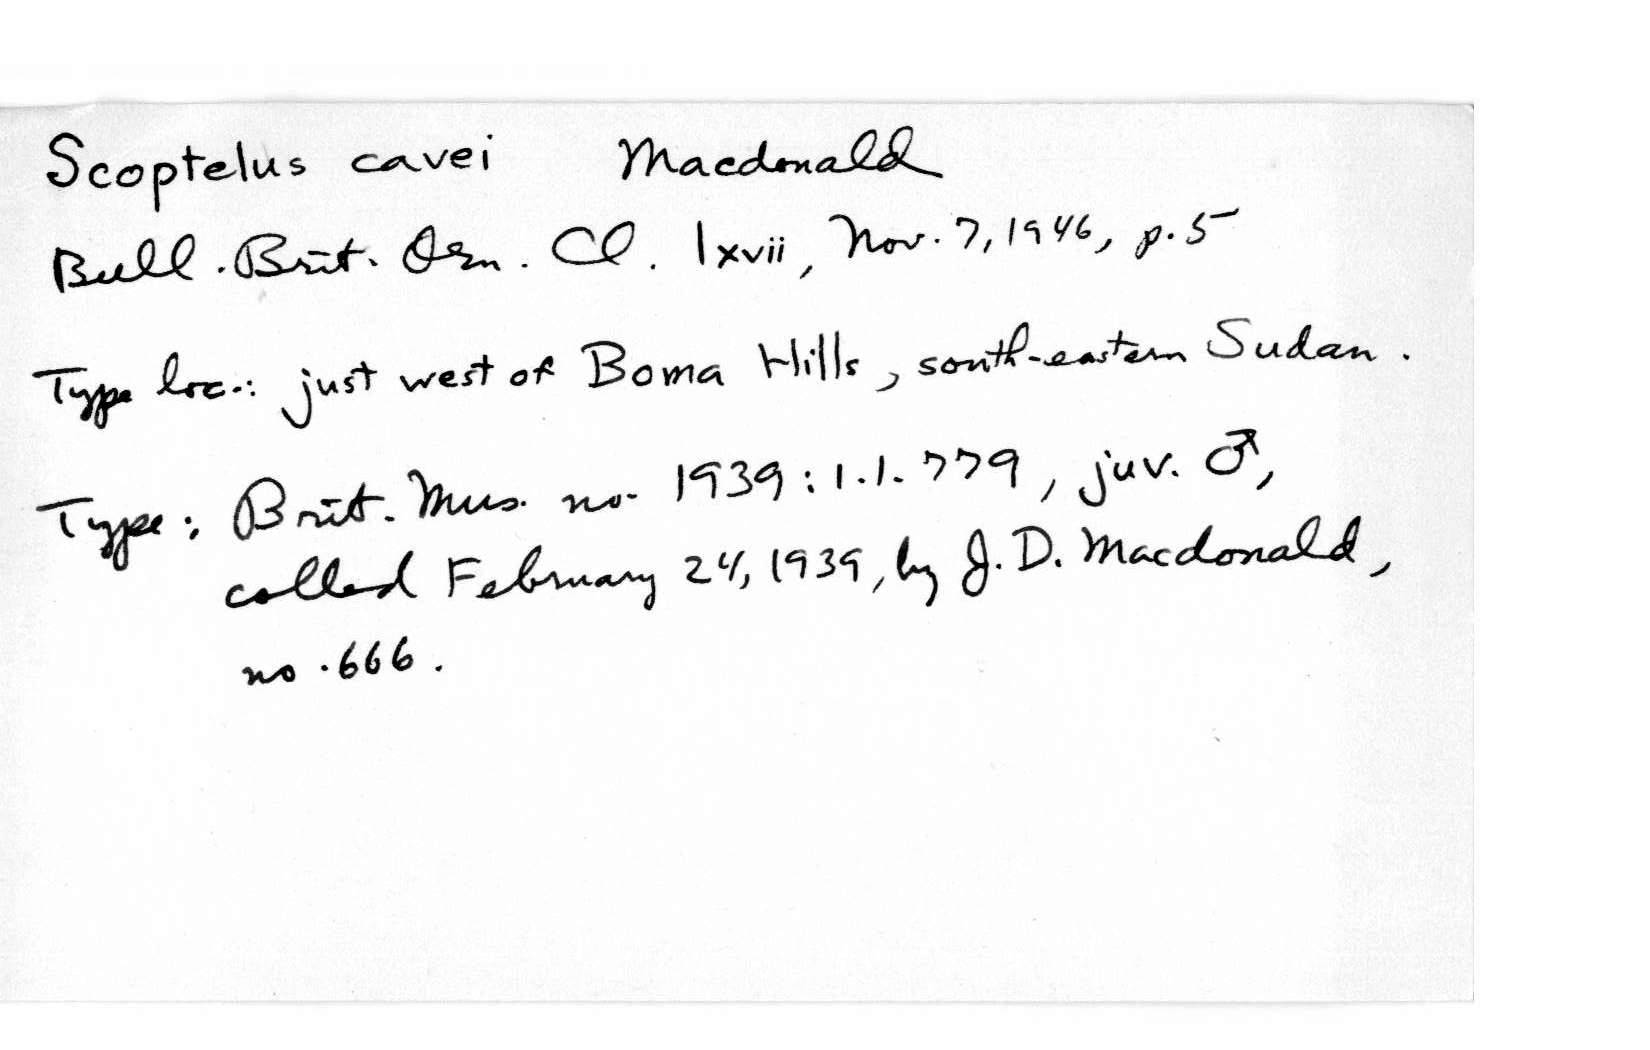 Scoptelus cavei Macdonald
Bull. Brit. Orn. Cl. lxvii, Nov. 7, 1946, p. 5
Type loc.: just west of Boma Hills, south-eastern Sudan.
Type: Brit. Mus. no. 1939:1.1.779, juv. ♂,
colled February 24, 1939, by J. D. Macdonald,
no. 666.